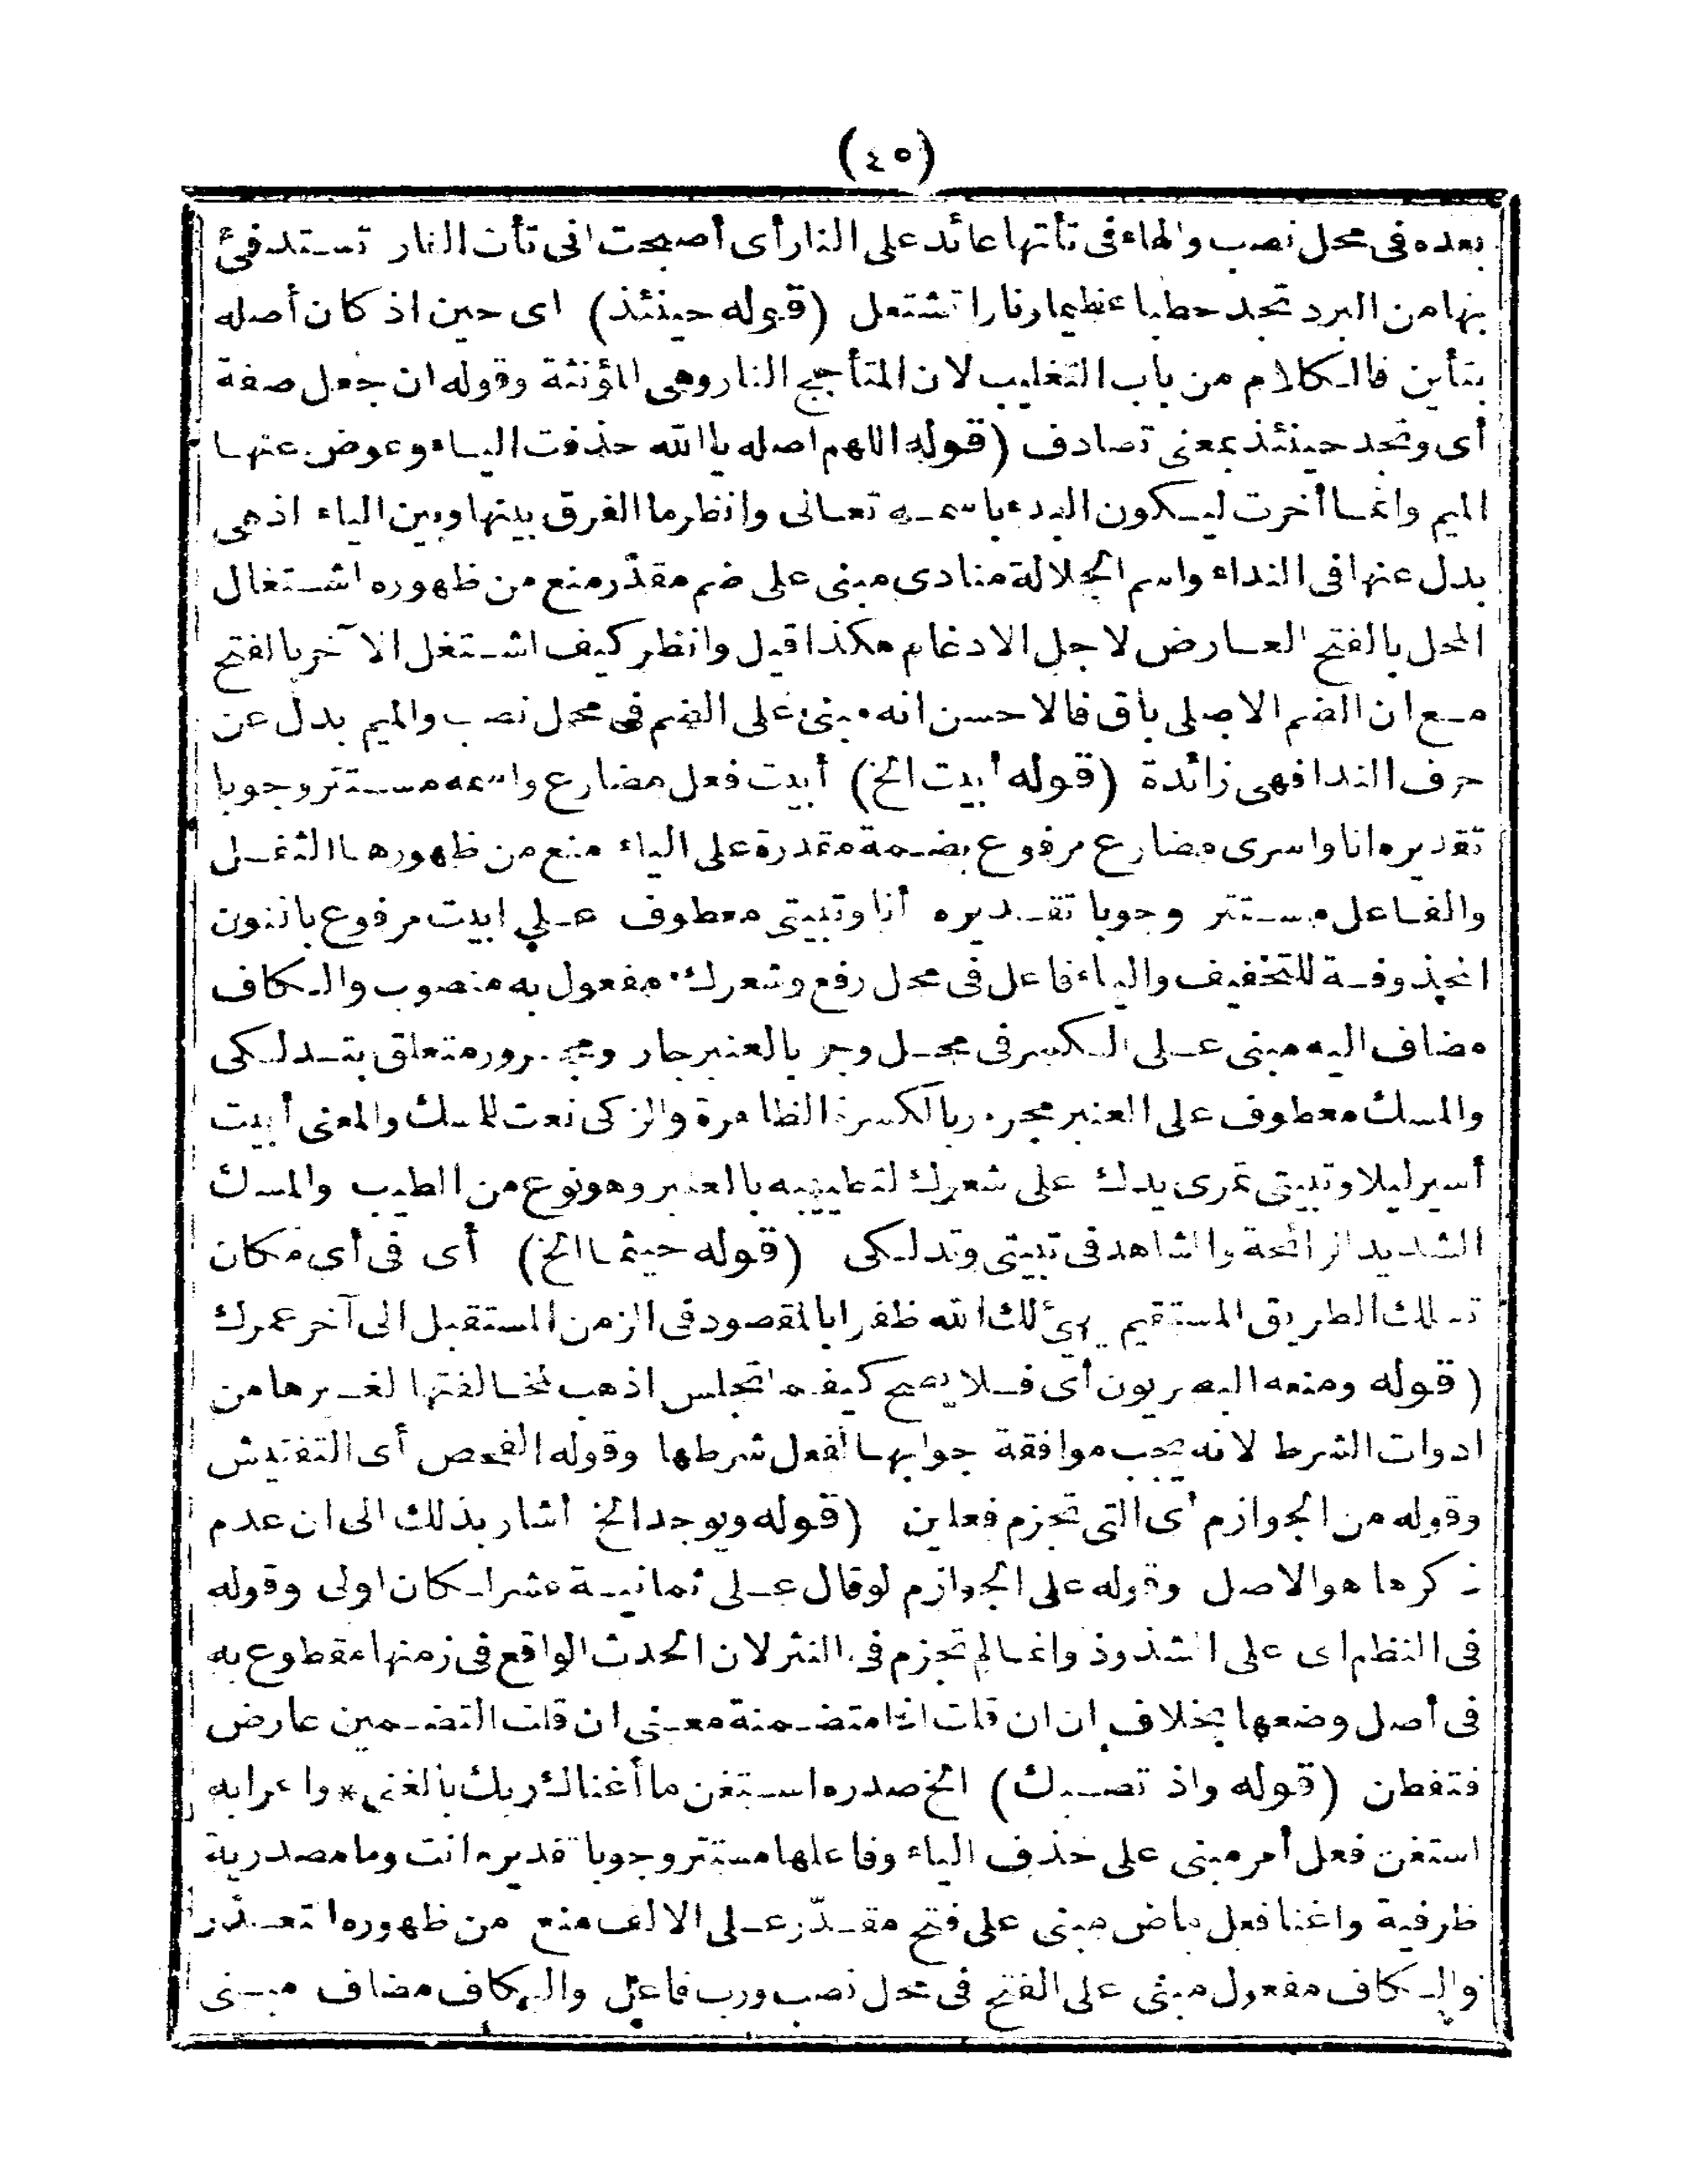 (٤٥)
بعده فى محل نصب والهاء فى تأتها عائد على النار أى أصبحت انى تأت النار تستدفئ
بها من البرد تجد حطبا عظيما ونارا تشتعل (قوله حينئذ) اى حين اذ كان أصله
بتأين فالكلام من باب التغليب لان المتأجج النار وهى المؤنثة وقوله ان جعل صفة
أى وتجد حينئذ بمعنى تصادف (قوله اللهم اصله يا الله حذفت الياء وعوض عنها
الميم وانما أخرت ليكون البدء باسمه تعالى وانظر ما الفرق بينها وبين الياء اذ هى
بدل عنها فى النداء واسم الجلالة منادى مبنى على ضم مقدّر منع من ظهوره اشتغال
المحل بالفتح العارض لاجل الادغام هكذا قيل وانظر كيف اشتغل الآخر بالفتح
مع ان الضم الاصلى باق فالاحسن انه مبنى على الضم فى محل نصب والميم بدل عن
حرف الندا فهى زائدة (قوله أبيت الخ) أبيت فعل مضارع واسمه مستتر وجوبا
تقديره انا واسرى مضارع مرفوع بضمة مقدرة على الياء منع من ظهورها الثقل
والفاعل مستتر وجوبا تقديره أنا وتبيتى معطوف على ابيت مرفوع بالنون
المحذوفة للتخفيف والياء فاعل فى محل رفع وشعرك مفعول به منصوب والكاف
مضاف اليه مبنى على الكسر فى محل وجر بالعنبر جار ومجرور متعلق بتدلكى
والمسك معطوف على العنبر مجرور بالكسرة الظاهرة والزكى نعت للمسك والمعنى أبيت
أسير ليلا وتبيتى تمرى يدك على شعرك لتطييبه بالعنبر وهو نوع من الطيب والمسك
الشديد الرائحة والشاهد فى تبيتى وتدلكى (قوله حيثما الخ) أى فى أى مكان
تسلك الطريق المستقيم يهيّئ لك الله ظفرا بالمقصود فى الزمن المستقبل الى آخر عمرك
(قوله ومنعه البصريون أى فلا يصح كيفما تجلس اذهب لمخالفتها لغيرها من
ادوات الشرط لانه يجب موافقة جوابها لفعل شرطها وقوله الفحص أى التفتيش
وقوله من الجوازم أى التى تجزم فعلين (قوله ويوجد الخ اشار بذلك الى ان عدم
ذكرها هو الاصل وقوله على الجوازم لو قال على ثمانية عشر لكان اولى وقوله
فى النظم اى على الشذوذ وانما لم تجزم فى النثر لان الحدث الواقع فى زمنها مقطوع به
فى أصل وضعها بخلاف ان ان قلت انها متضمنة معنى ان قلت التضمين عارض
فتفطن (قوله واذ تصبك) الخ صدره استغن ما أغناك ربك بالغنى * واعرابه
استغن فعل أمر مبنى على حذف الياء وفاعلها مستتر وجوبا تقديره انت وما مصدرية
ظرفية واغنا فعل ماض مبنى على فتح مقدّر على الالف منع من ظهوره التعذّر
والكاف مفعول مبنى على الفتح فى محل نصب ورب فاعل والكاف مضاف مبنى